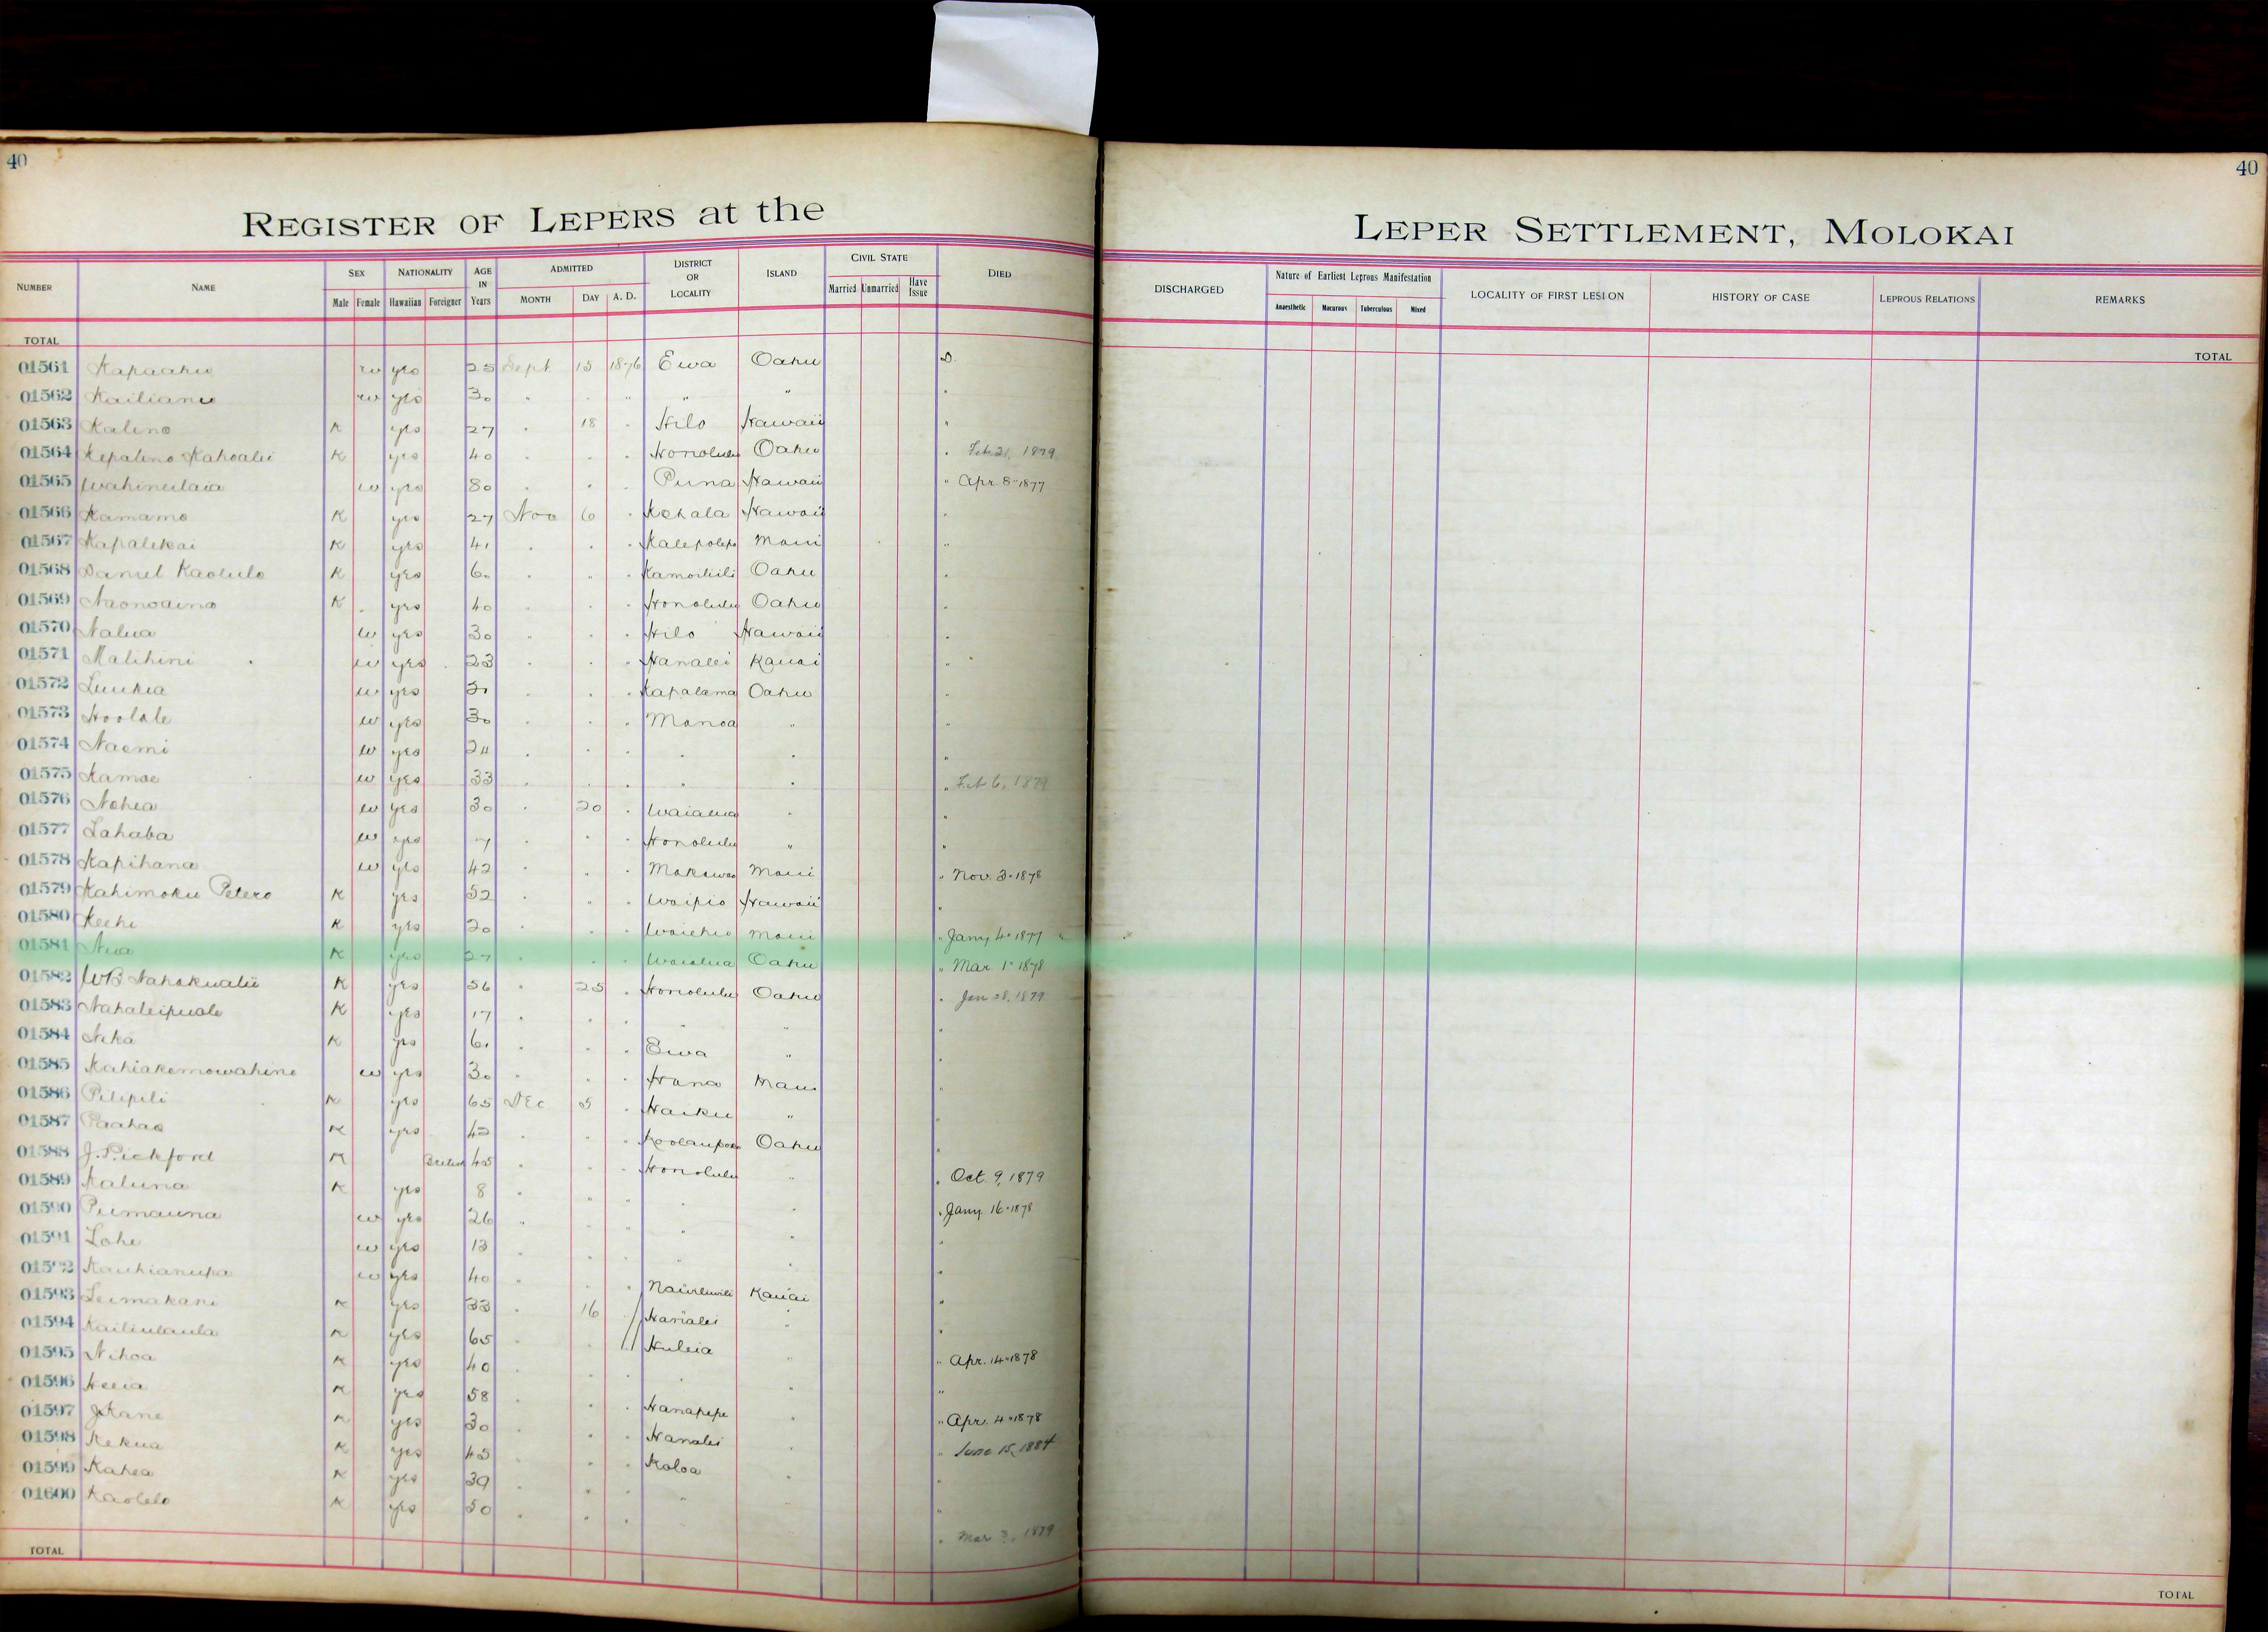 40
40
REGISTER OF LEPERS at the
LEPER SETTLEMENT, MOLOKAI
NUMBER NAME SEX NATIONALITY AGE IN Years ADMITTED DISTRICT OR LOCALITY ISLAND CIVIL STATE DIED
Male Female Hawaiian Foreigner MONTH DAY A. D. Married Unmarried Have Issue
DISCHARGED Nature of Earliest Leprous Manifestation LOCALITY OF FIRST LESION HISTORY OF CASE LEPROUS RELATIONS REMARKS
Anaesthetic Macurous Tuberculous Mixed
TOTAL
TOTAL
01561 Kapaahu w yes 25 Sept 15 1876 Ewa Oahu D.
01562 Kailianu w yes 30 " " " " " "
01563 Kalino K yes 27 " 18 " Hilo Hawaii "
01564 Kepalino Kahoalii K yes 40 " " " Honolulu Oahu " Feb 21, 1879
01565 Wahineilaia w yes 80 " " " Puna Hawaii " Apr. 8" 1877
01566 Kamamo K yes 27 Nov 6 " Kohala Hawaii "
01567 Kapalikai K yes 41 " " " Kalepolepo Maui "
01568 Daniel Kaolulo K yes 60 " " " Kamoiliili Oahu "
01569 Naonoaina K yes 40 " " " Honolulu Oahu "
01570 Nalua w yes 30 " " " Hilo Hawaii "
01571 Malihini w yes 23 " " " Hanalei Kauai "
01572 Luukia w yes " " " Kapalama Oahu "
01573 Hoolale w yes 30 " " " Manoa " "
01574 Naomi w yes 24 " " " " " "
01575 Kamae w yes 33 " " " " " " Feb 6, 1879
01576 Nohea w yes 30 " 20 " Waialua " "
01577 Lahaba w yes 7 " " " Honolulu " "
01578 Kapihana w yes 42 " " " Makawao Maui " Nov. 3" 1878
01579 Kahimoku Petero K yes 52 " " " Waipio Hawaii "
01580 Keehi K yes 20 " " " Waiehu Maui " Jany 4" 1877
01581 K yes 27 " " " Waialua Oahu " Mar 1" 1878
01582 WB Nahokualii K yes 56 " 25 " Honolulu Oahu " Jan 28, 1879
01583 Nahaleipuole K yes 17 " " " " " "
01584 Nika K yes 61 " " " Ewa " "
01585 Kahiakemowahine w yes 30 " " " Hana Maui "
01586 Pilipili K yes 65 Dec 5 " Haiku " "
01587 Paahao K yes 42 " " " Koolaupoko Oahu "
01588 J. Pickford K British 45 " " " Honolulu " " Oct. 9, 1879
01589 Kaluna K yes 8 " " " " " " Jany. 16" 1878
01590 Puimauna w yes 26 " " " " " "
01591 Lohe w yes 13 " " " " " "
01592 Kauhianupa w yes 40 " " " Nawiliwili Kauai "
01593 Leimakani K yes 33 " 16 Hanalei " "
01594 Kailiulaula K yes 65 " " Huleia " " Apr. 14" 1878
01595 Nihoa K yes 40 " " " " "
01596 Heeia K yes 58 " " " Hanapepe " " Apr. 4" 1878
01597 J Kane K yes 30 " " " Hanalei " " June 15, 1884
01598 Kekua K yes 45 " " " Koloa " "
01599 Kahea K yes 39 " " " " " "
01600 Kaolelo K yes 50 " " " " Mar 3, 1879
TOTAL
TOTAL